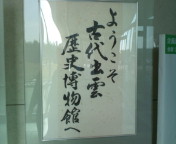 ようこそ
古代出雲
歴史博物館へ